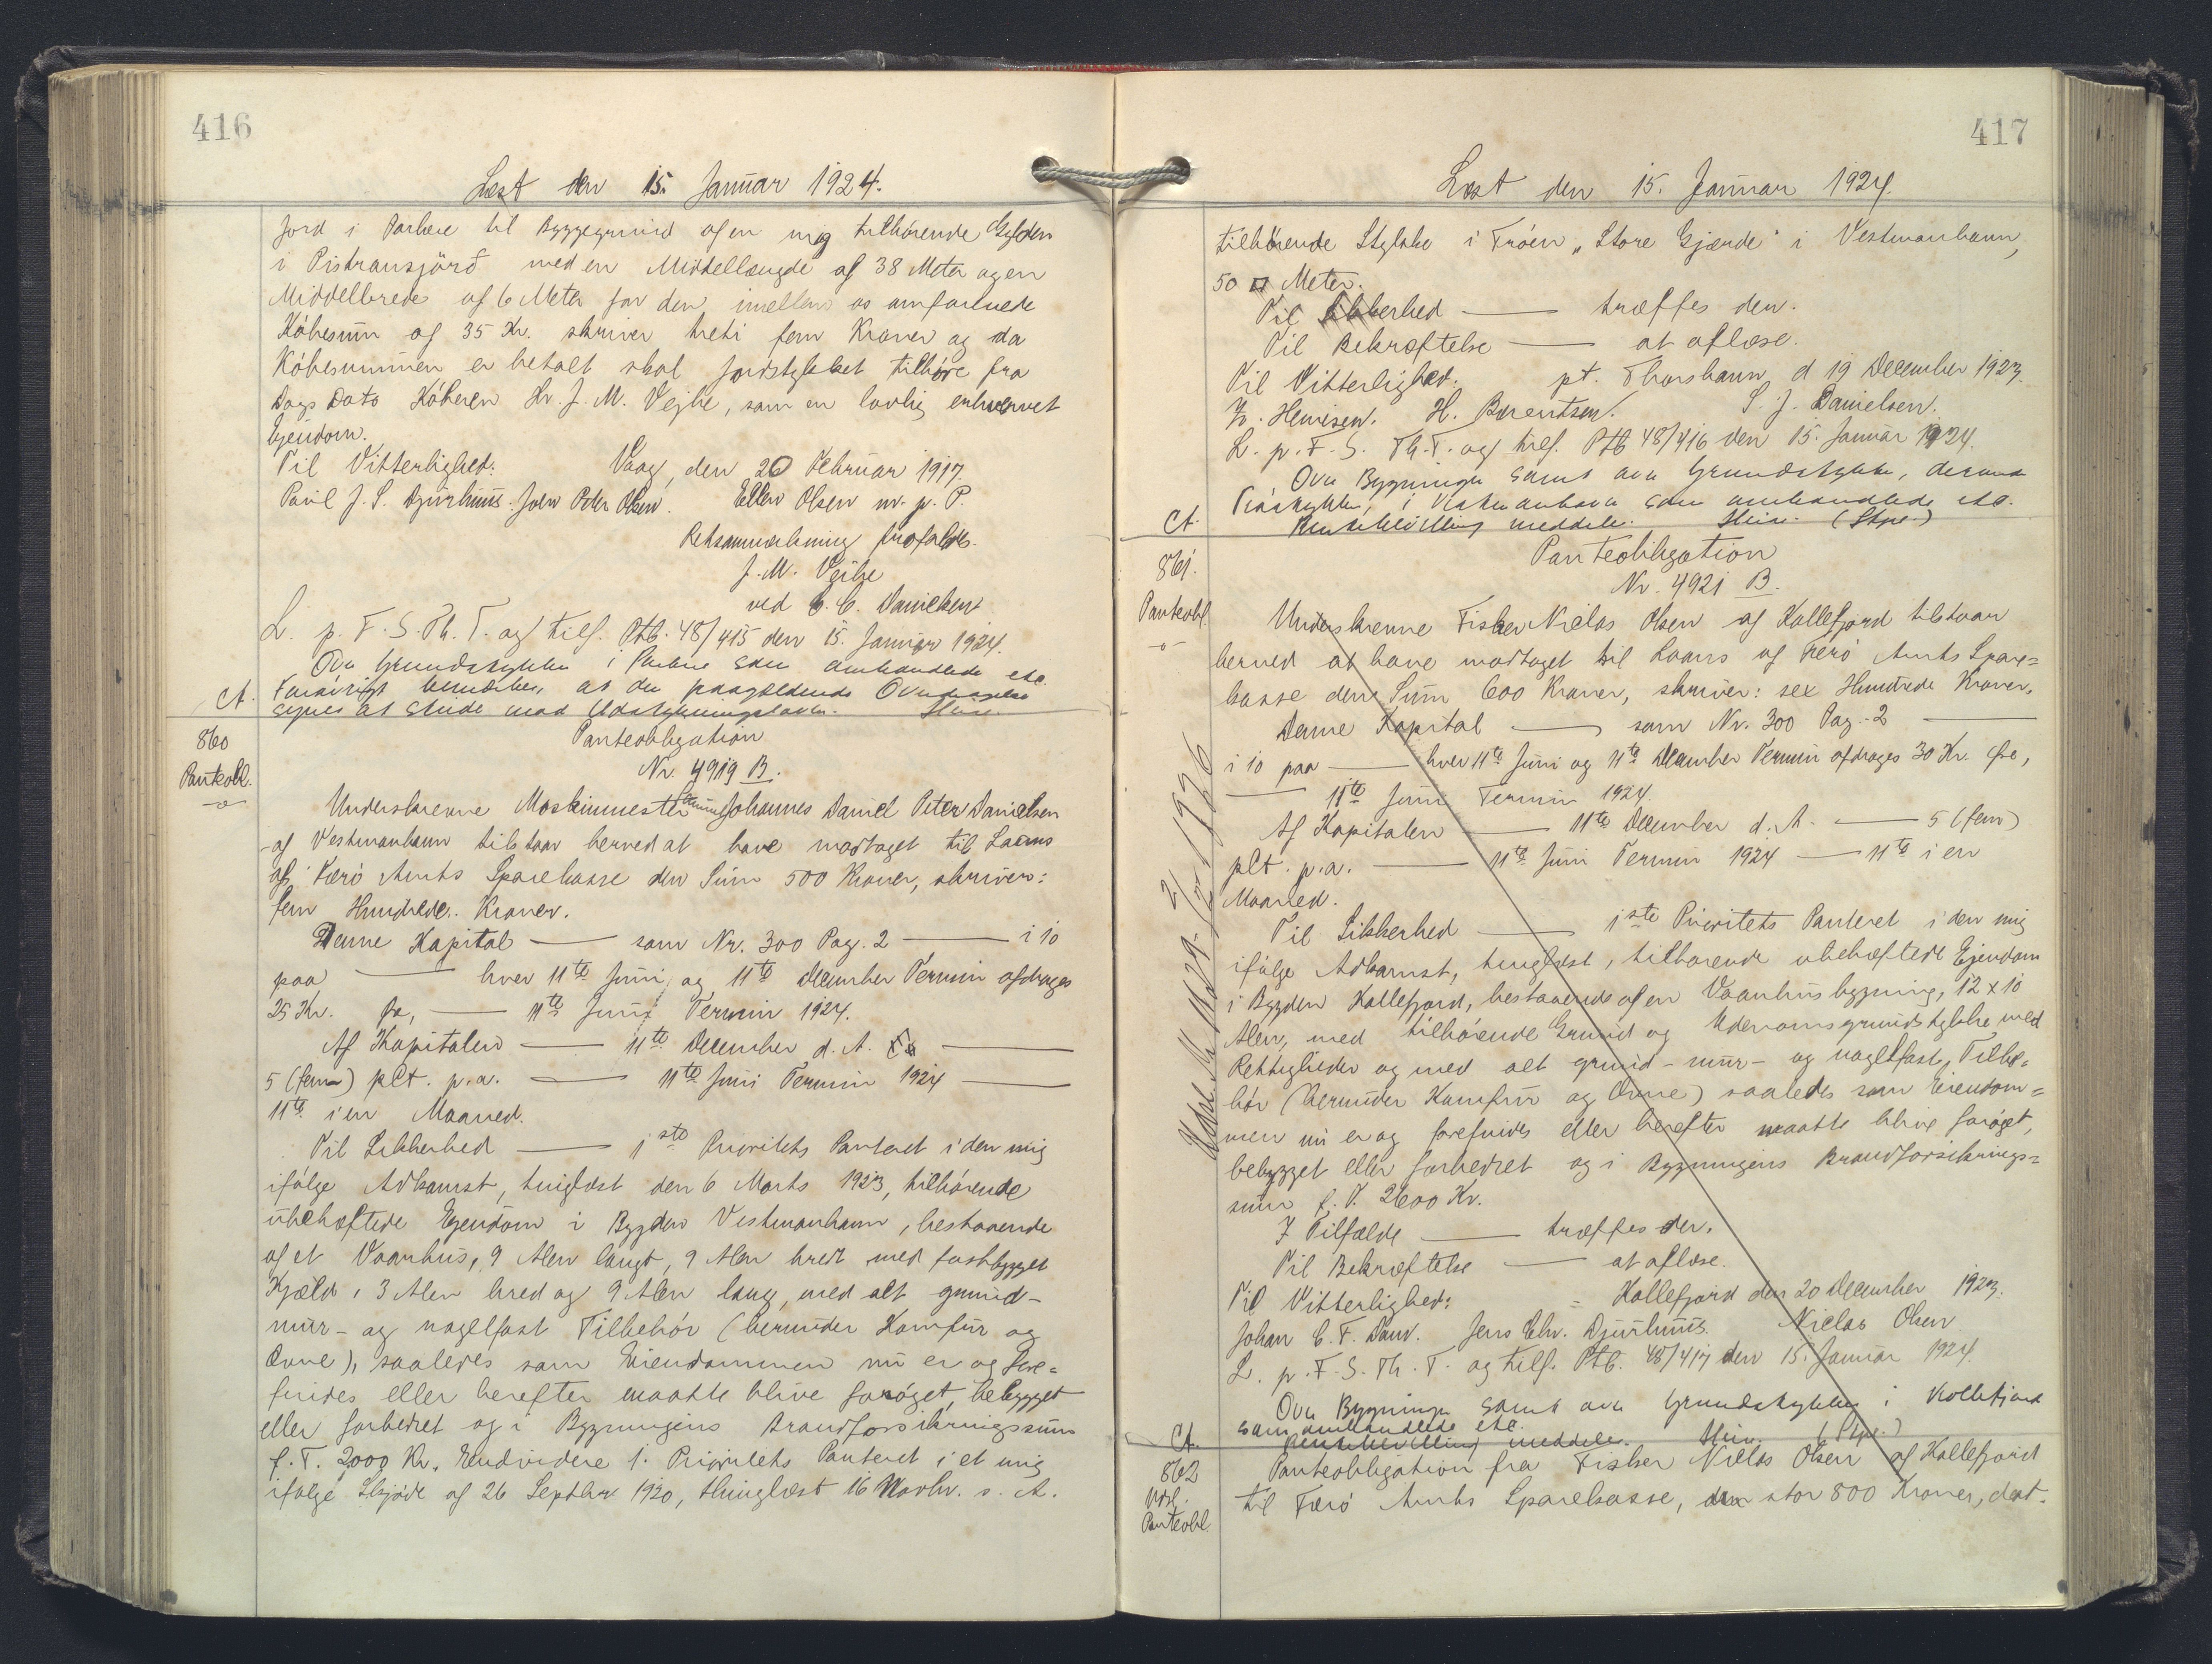 416
Læst den 15. Januar 1924.
Jord i Porkere til Byggegrund af en mig tilhørende Gylden
i Pistransjørð med en Middellængde af 38 Meter og en
Middelbrede af 6 Meter for den imellem os omforenede
Købesum af 35 Kr. skriver treti fem Kroner og da
Købesummen er betalt skal Jordstykket tilhøre fra
Dags Dato Køberen Hr. J. M. Vejhe, som en lovlig erhvervet
Ejendom.
Til Vitterlighed. Vaag, den 20 Februar 1917.
Poul J. S. Djurhuus. John Peter Olsen. Ellen Olsen m. p. P.
Retsanmærkning frafaldes.
J. M. Vejhe
ved C. C. Danielsen
L. p. F. S. Th. T. og tilf. Ptb. 48/415 den 15. Januar 1924.
Ovn Grundstykke i Porkere som omhandlede etc.
Forøvrigt bemærkes, at den paagældende Overdragelse
Ct. synes at stride mod Udstykningsloven.
860 Panteobligation
Panteobl. Nr. 4919 B.
Underskrevne Maskinmester Johannes Daniel Peter Danielsen
af Vestmanhavn tilstaar herved at have modtaget til Laans
af Færø Amts Sparekasse den Sum 500 Kroner, skriver:
fem Hundrede Kroner.
Denne Kapital — som Nr. 300 Pag. 2 — i 10
paa — hver 11te Juni og 11te December Termin afdrages
25 Kr. fra, — 11te Juni Termin 1924.
Af Kapitalen — 11te December d. A. —
5 (fem) pCt. p. a. — 11te Juni Termin 1924 —
11te i en Maaned.
Til Sikkerhed — 1ste Prioritets Panteret i den mig
ifølge Adkomst, tinglæst den 6 Marts 1923, tilhørende
ubehæftede Ejendom i Bygden Vestmanhavn, bestaaende
af et Vaanhus, 9 Alen langt, 9 Alen bredt med fastbygget
Kjæld, 3 Alen bred og 9 Alen lang, med alt grund-
mur- og nagelfast Tilbehør (herunder Komfur og
Ovne), saaledes som Eiendommen nu er og fore=
findes eller herefter maatte blive forøget, bebygget
eller forbedret og i Bygningens Brandforsikringssum
f. T. 2000 Kr. Endvidere 1. Prioritets Panteret i et mig
ifølge Skjøde af 26 Septbr 1920, thinglæst 16 Novbr. s. A.
417
Læst den 15. Januar 1924.
tilhørende Stykke i Trøen „Store Gjærde" i Vestmanhavn,
50 □ Meter.
Til Sikkerhed — træffes den.
Til Bekræftelse — at aflæse.
Til Vitterlighed. pt. Thorshavn, d 19 December 1923.
H. Berentsen. S. J. Danielsen.
L. p. F. S. Th. T. og tilf. Ptb 48/416 den 15. Januar 1924.
Ovn Bygninger samt ovn Grundstykke,
Trøstykke, i Vestmanhavn som omhandlede etc.
Ct. meddele. (Stpr.)
861. Panteobligation
Nr. 4921 B.
Panteobl. Underskrevne Fisker Nielas Olsen af Kollefjord tilstaar
herved at have modtaget til Laans af Færø Amts Spare=
kasse den Sum 600 Kroner, skriver: sex Hundrede Kroner,
Denne Kapital — som Nr. 300 Pag. 2 —
i 10 paa — hver 11te Juni og 11te December Termin afdrages 30 Kr. fra,
— 11te Juni Termin 1924.
Af Kapitalen — 11te December d. A. — 5 (fem)
pCt. p. a. — 11te Juni Termin 1924 — 11te i en
Maaned.
Til Sikkerhed — 1ste Prioritets Panteret i den mig
ifølge Adkomst, tinglæst, tilhørende ubehæftede Ejendom
i Bygden Kollefjord, bestaaende af en Vaanhusbygning, 12 x 10
Alen, med tilhørende Grund og Udenomsgrundstykke med
Rettigheder og med alt grund- mur- og nagelfast, Tilbe=
hør (herunder Komfur og Ovne) saaledes som Eiendom=
men nu er og forefindes eller herefter maatte blive forøget,
bebygget eller forbedret og i Bygningens Brandforsikrings=
sum f. T. 2600 Kr.
I Tilfælde — træffes den.
Til Bekræftelse — at aflæse.
Til Vitterlighed: Kollefjord den 20 December 1923.
Johan C. F. Dam. Jens Chr. Djurhuus. Nielas Olsen
L. p. F. S. Th. T. og tilf. Ptb. 48/417 den 15. Januar 1924
Ovn Bygninger samt ovn Grundstykke i Kollefjord
som omhandlede etc.
Ct. meddele. (Stpr.)
862 Panteobligation fra Fisker Nielas Olsen af Kollefjord
Udsl. til Færø Amts Sparekasse, stor 800 Kroner, dat.
Panteobl.